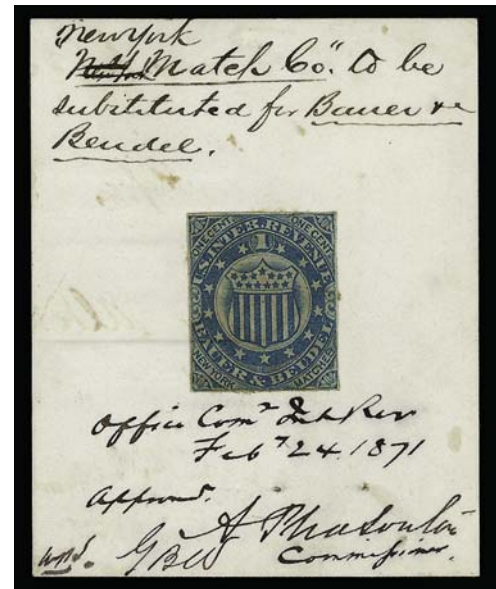 New York
Match Co". to be
substituted for Bauer &
Beudel.
ONE CENT ONE CENT
U.S. INTER. REVENUE
1
BAUER & BEUDEL
NEW YORK MATCHES
Office Comr Int Rev
Feby 24. 1871
Approved.
A Pleasonton
Commissioner.